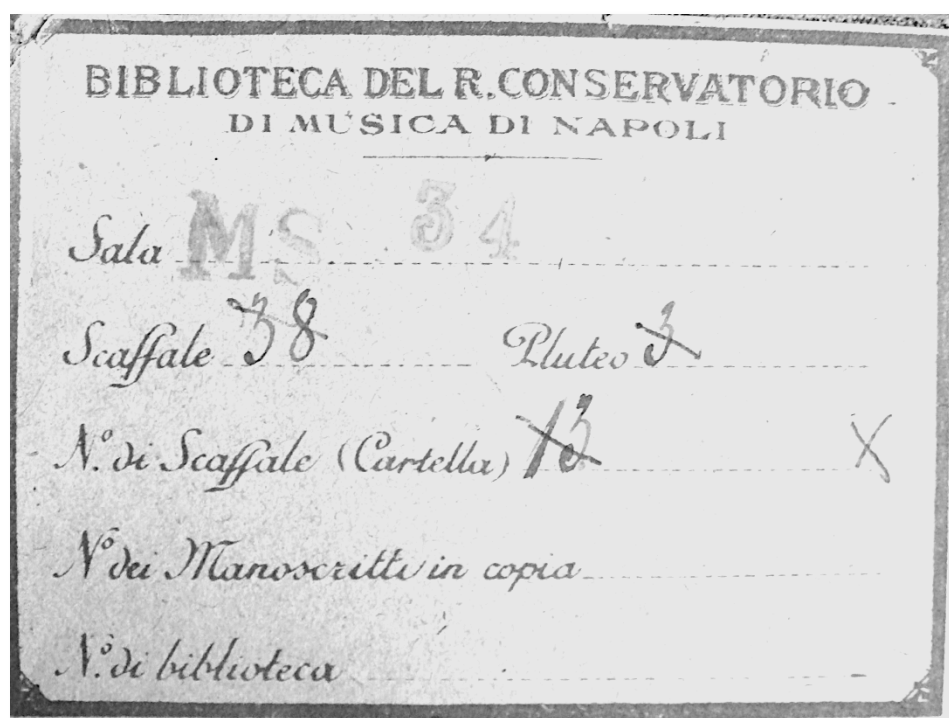 BIBLIOTECA DEL R. CONSERVATORIO
DI MUSICA DI NAPOLI
Sala MS 34
Scaffale 38 Pluteo 3
N.º di Scaffale (Cartella) 13 X
Nº dei Manoscritti in copia
N.º di biblioteca